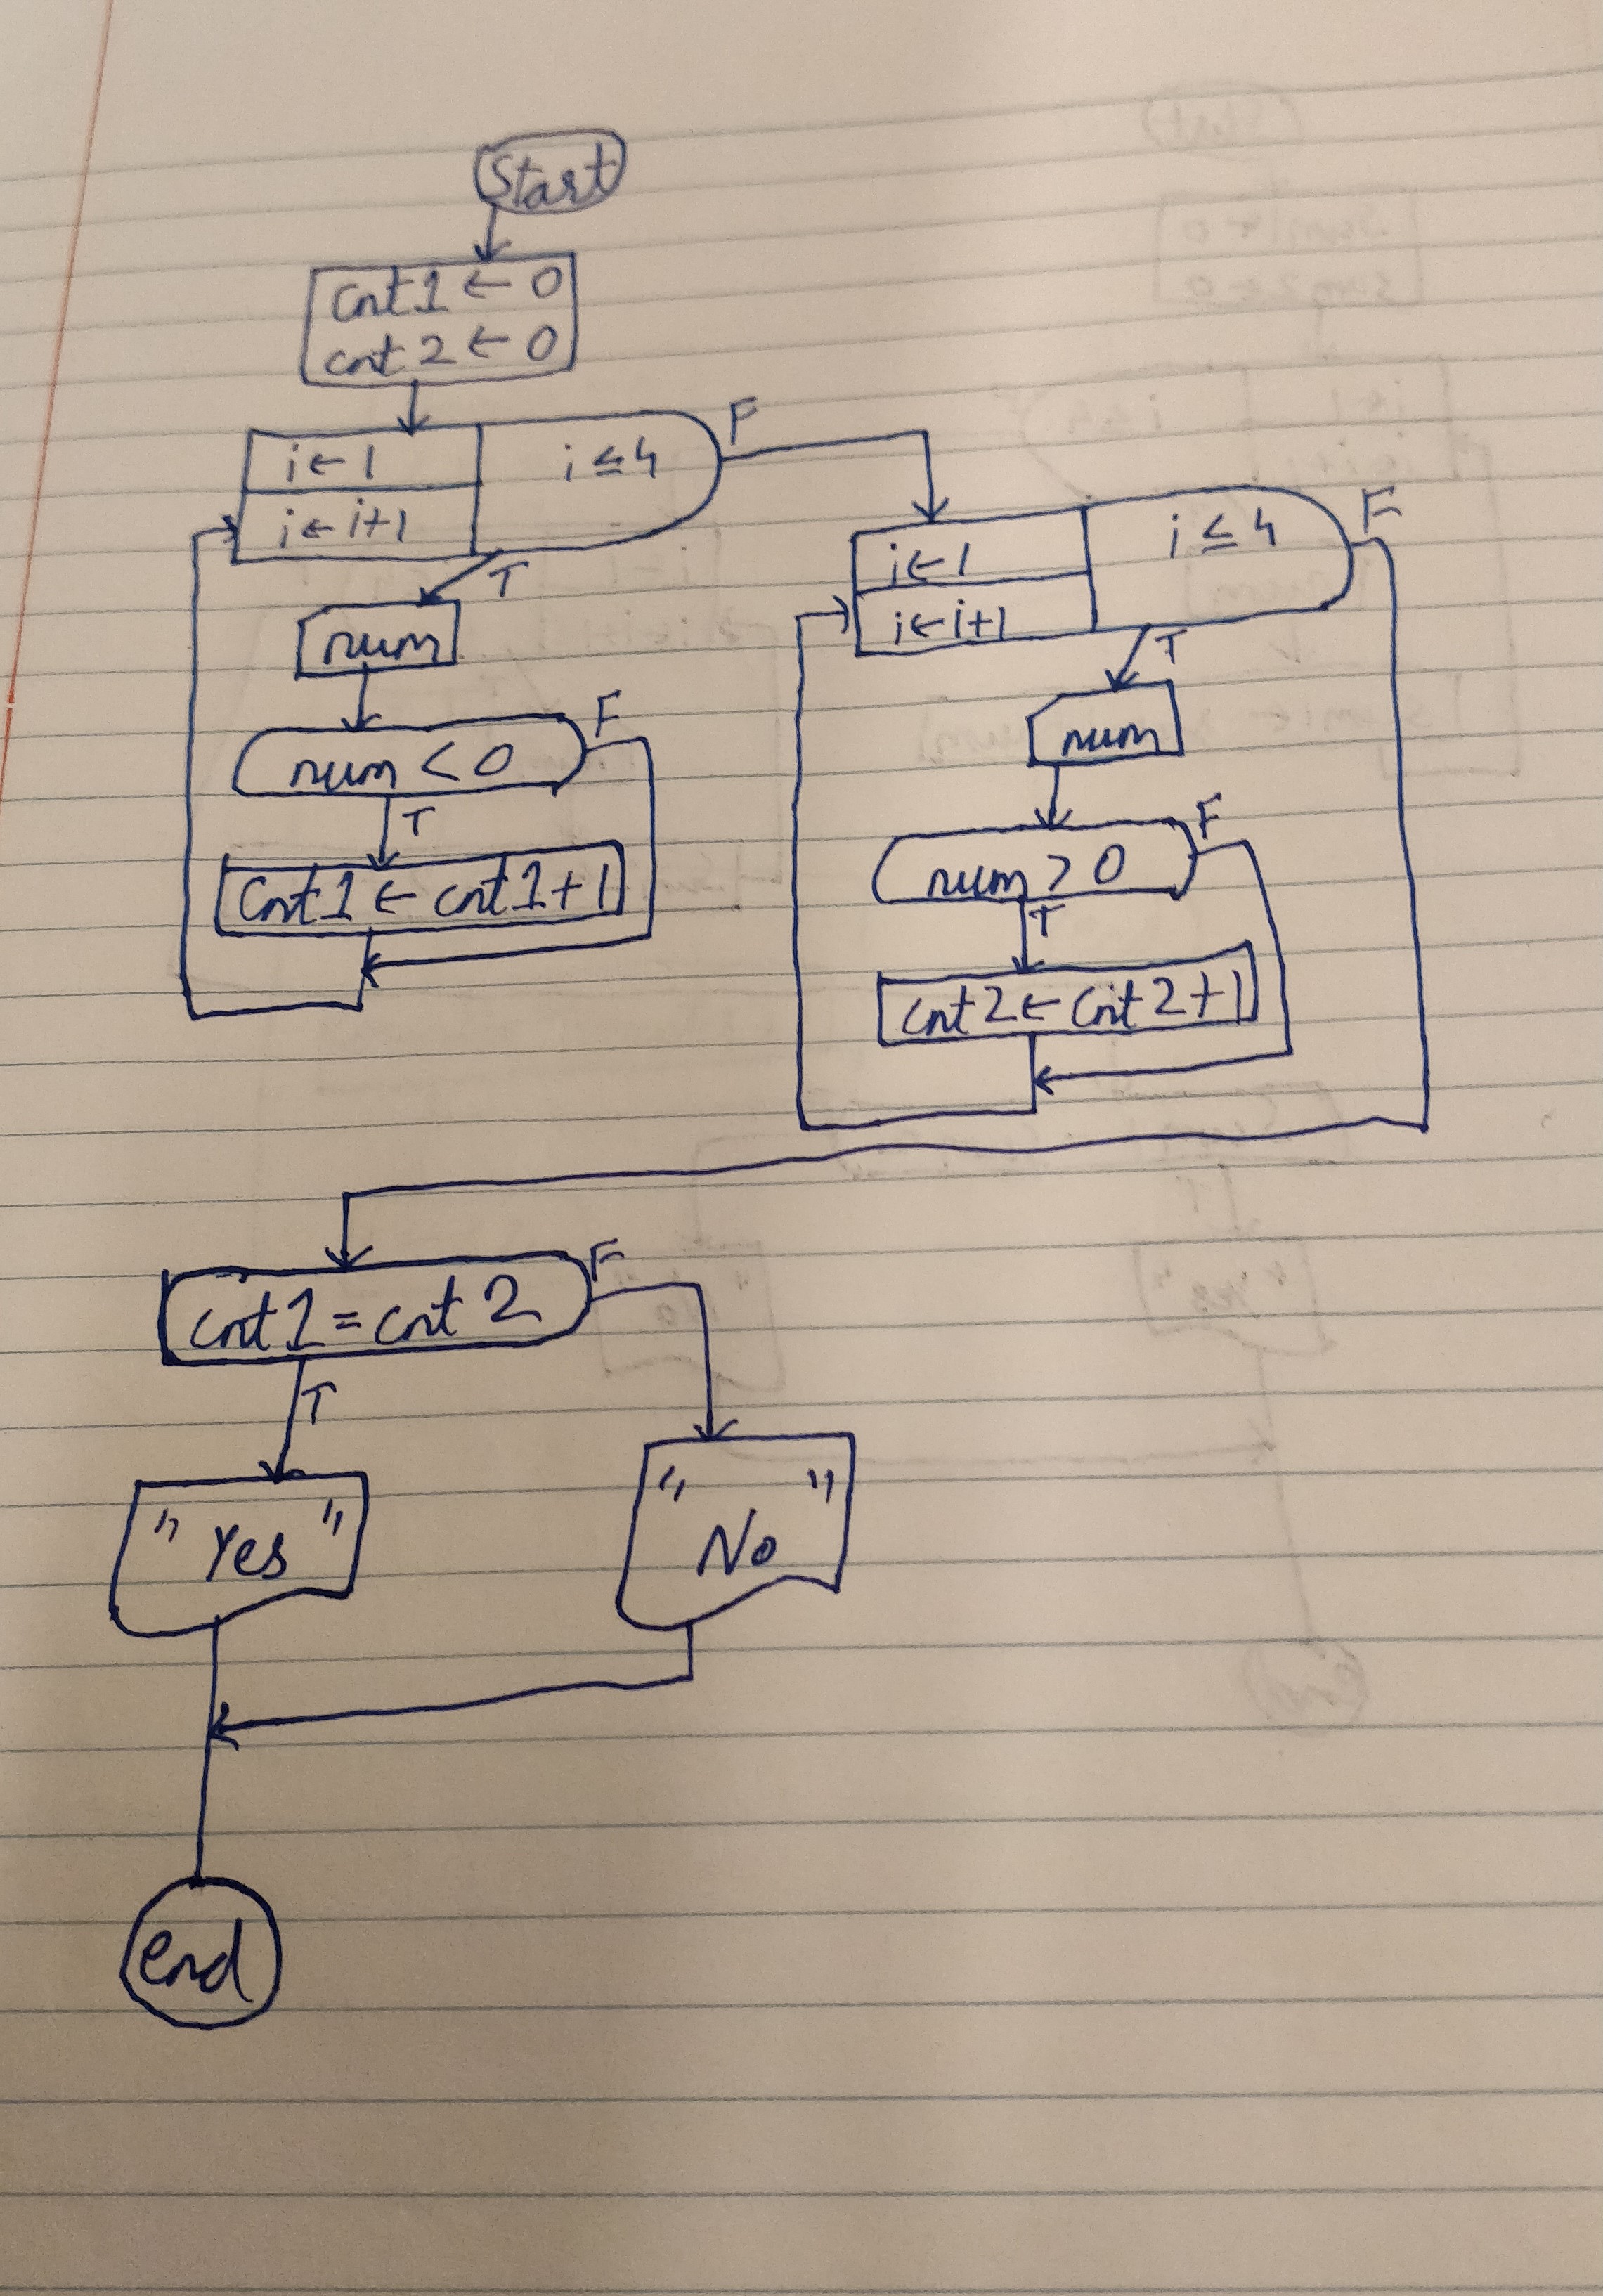 Start
cnt1 ← 0
cnt2 ← 0
i ← 1
i ≤ 4
F
i ← i+1
T
num
num < 0
F
T
cnt1 ← cnt1+1
i ← 1
i ≤ 4
F
i ← i+1
T
num
num > 0
F
T
cnt2 ← cnt2+1
cnt1 = cnt2
F
T
"Yes"
"No"
end